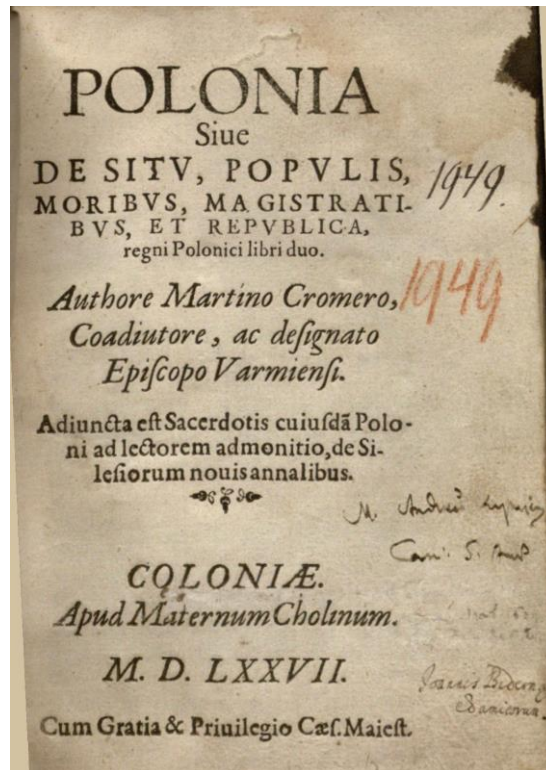 POLONIA
Siue
DE SITV, POPVLIS,
MORIBVS, MAGISTRATI-
BVS, ET REPVBLICA,
regni Polonici libri duo.
1949.
Authore Martino Cromero,
1949
Coadiutore, ac deſignato
Epiſcopo Varmienſi.
Adiuncta eſt Sacerdotis cuiuſdã Polo-
ni ad lectorem admonitio, de Si-
leſiorum nouis annalibus.
M.
COLONIÆ.
Apud Maternum Cholinum.
M. D. LXXVII.
Cum Gratia & Priuilegio Cæſ. Maieſt.